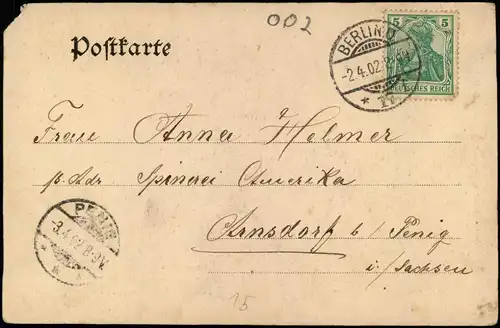 002
Postkarte
BERLIN O
-2.4.02.
* 17.
5 5
DEUTSCHES REICH
Frau Anna Helmer
p. Adr Spinerei Amerika
Arnsdorf b/ Penig
i/Sachsen
PENIG
3.4.02.8-9V.
* *
15